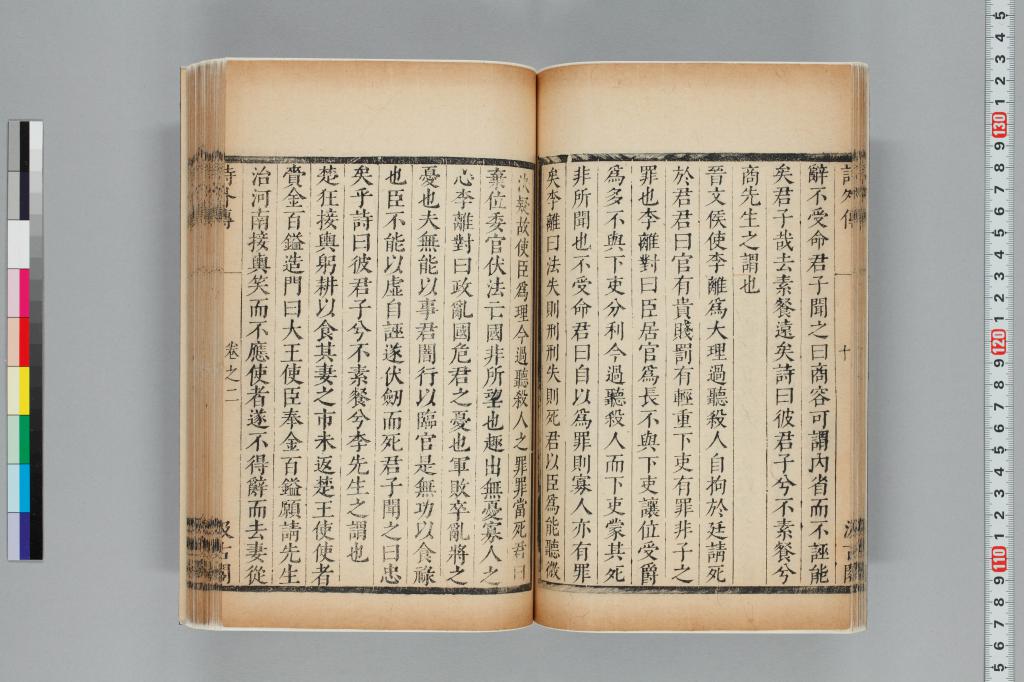 詩外傳
十
汲古閣
辭不受命君子聞之曰商容可謂內省而不誣能
矣君子哉去素餐遠矣詩曰彼君子兮不素餐兮
商先生之謂也
晉文侯使李離爲大理過聽殺人自拘於廷請死
於君君曰官有貴賤罰有輕重下吏有罪非子之
罪也李離對曰臣居官爲長不與下吏讓位受爵
爲多不與下吏分利今過聽殺人而下吏蒙其死
非所聞也不受命君曰自以爲罪則寡人亦有罪
矣李離曰法失則刑刑失則死君以臣爲能聽微
決疑故使臣爲理今過聽殺人之罪罪當死君曰
棄位委官伏法亡國非所望也趣出無憂寡人之
心李離對曰政亂國危君之憂也軍敗卒亂將之
憂也夫無能以事君闇行以臨官是無功以食祿
也臣不能以虛自誣遂伏劒而死君子聞之曰忠
矣乎詩曰彼君子兮不素餐兮李先生之謂也
楚狂接輿躬耕以食其妻之市未返楚王使使者
賫金百鎰造門曰大王使臣奉金百鎰願請先生
治河南接輿笑而不應使者遂不得辭而去妻從
詩外傳
卷之二
汲古閣
5
4
3
2
1
130
9
8
7
6
5
4
3
2
1
120
9
8
7
6
5
4
3
2
1
110
9
8
7
6
5